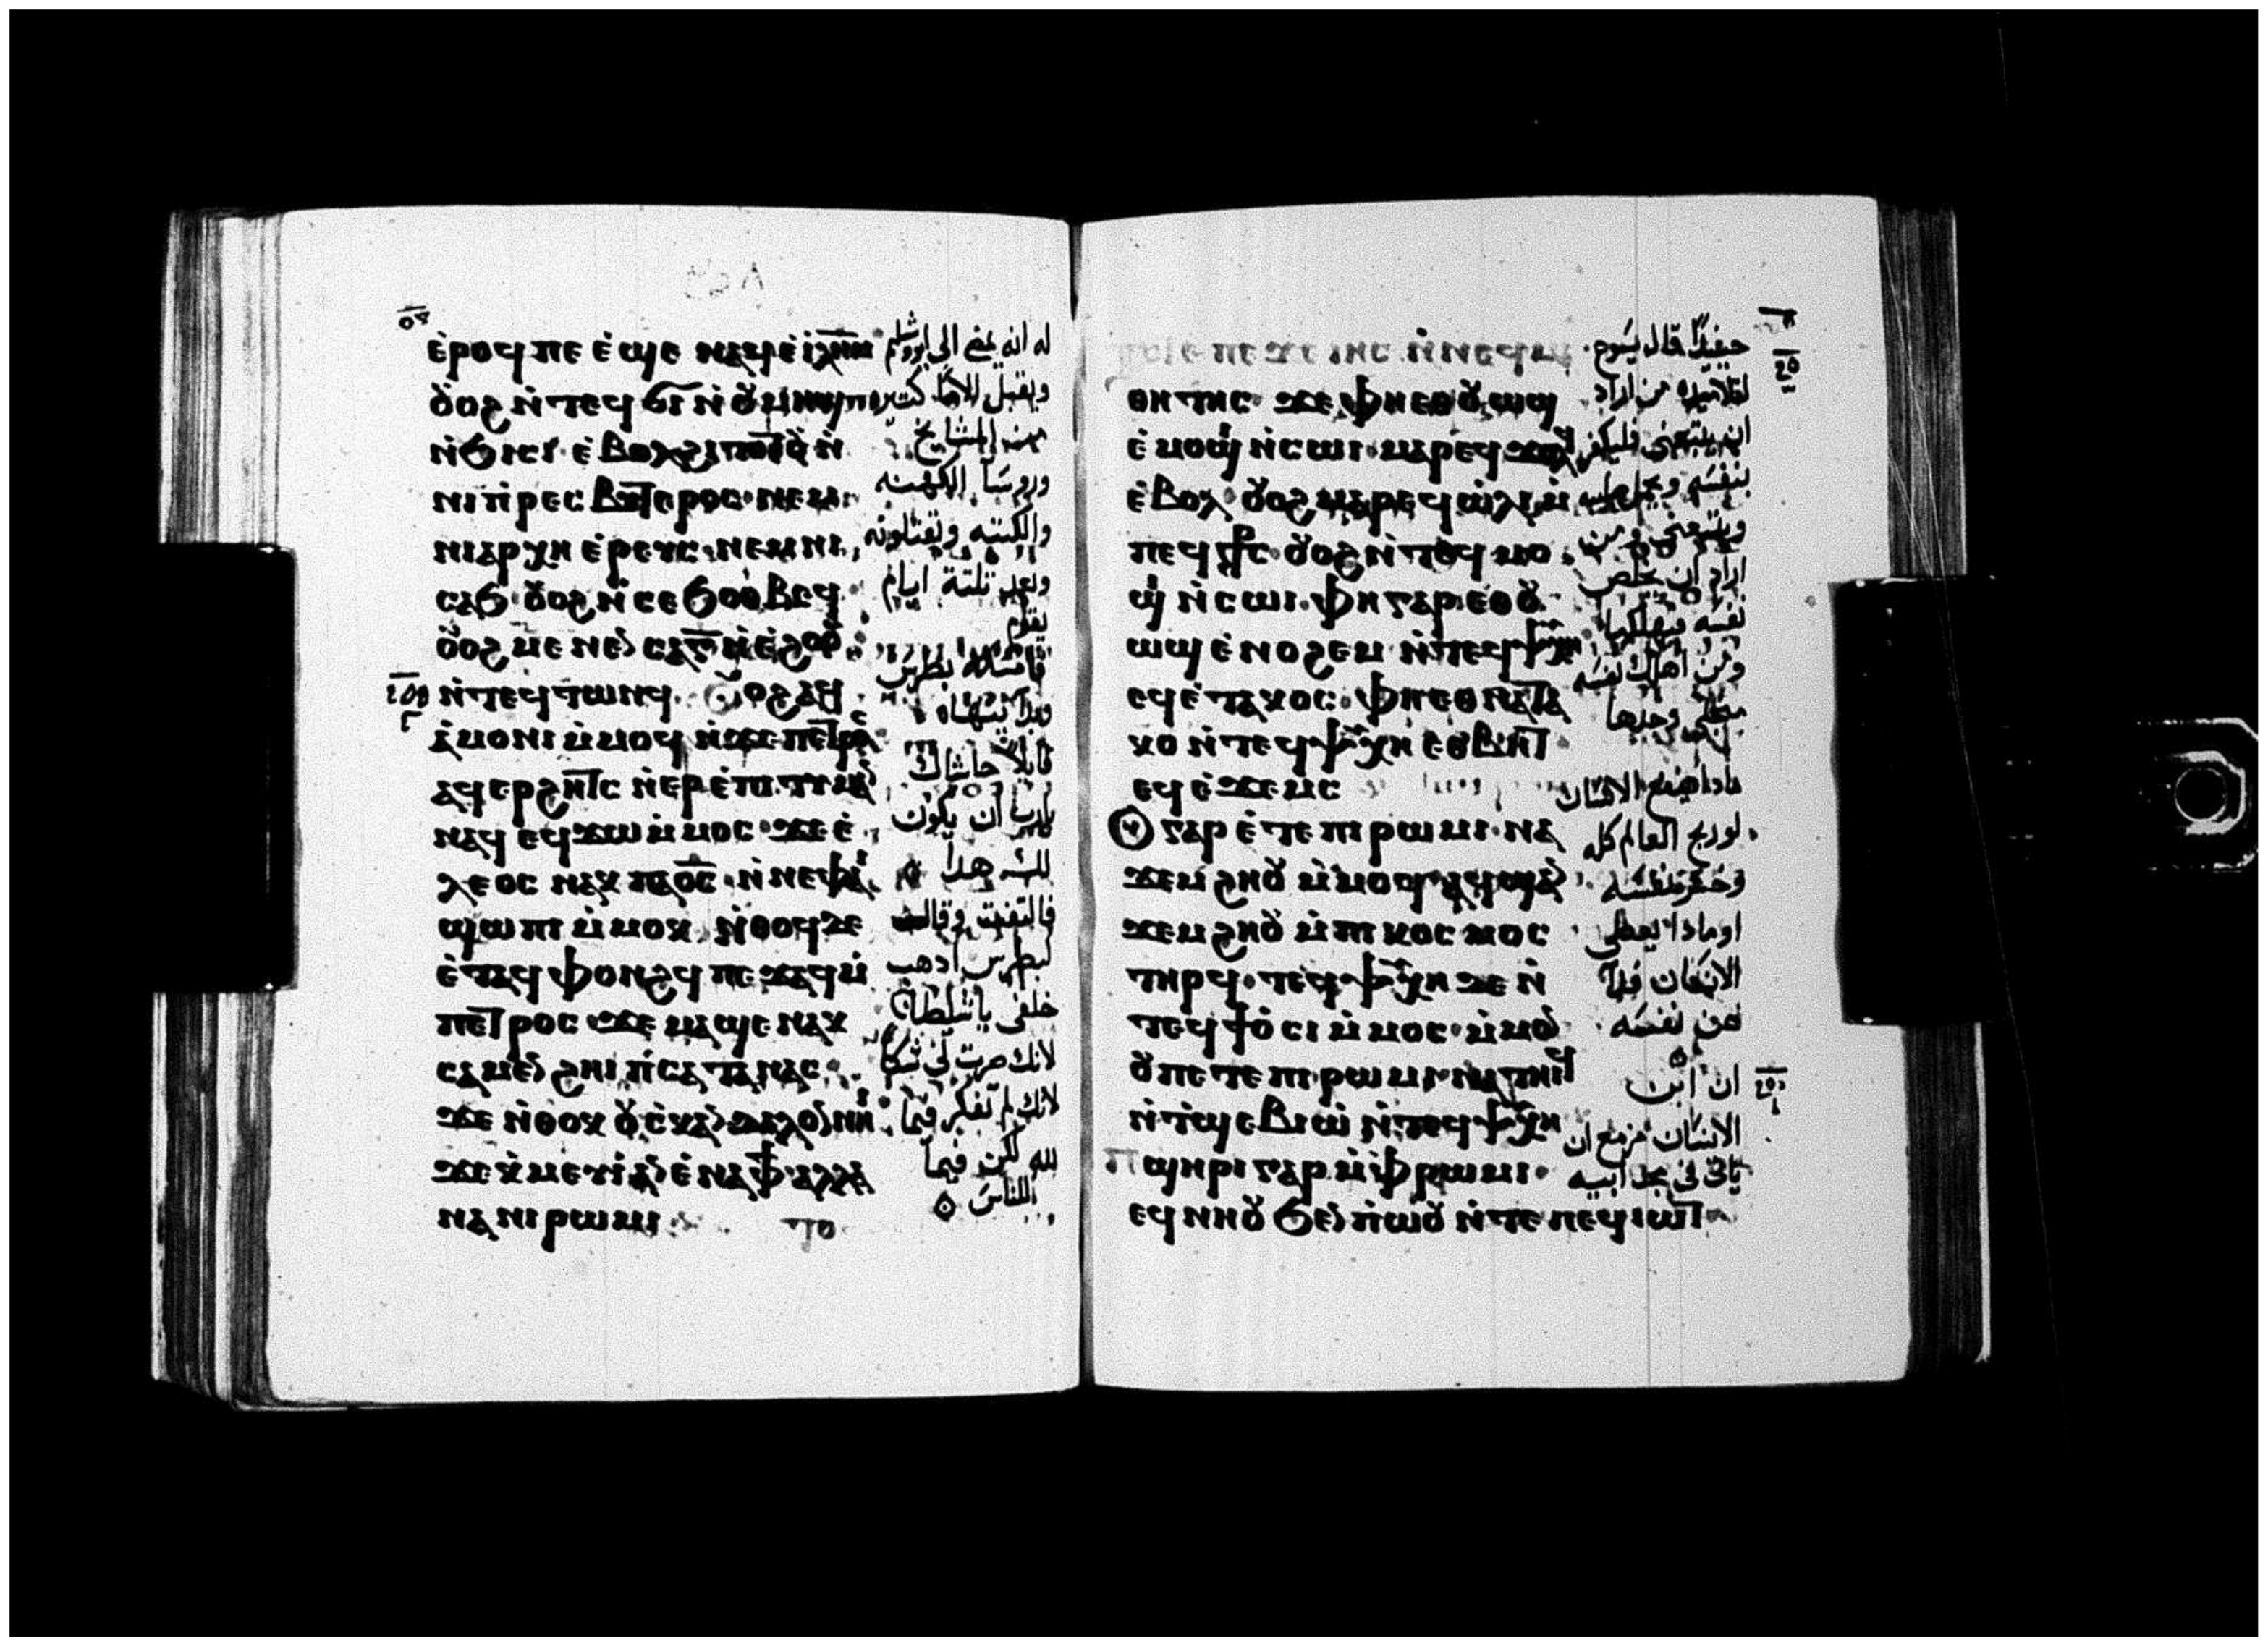 ⲉ̀ⲣⲟϥ ⲡⲉ ⲉ̀ ϣⲉ ⲛⲁϥ ⲉ̀ ⲓ̅ⲗ̅ⲏ̅ⲙ̅
ⲟ̆ⲟϩ ⲛ̀ⲧⲉϥ ϭⲓ ⲛ̀ ⲟ̆ⲙⲏϣ
ⲛ̀ϭⲓⲥⲓ ⲉ̀ⲃⲟⲗϩⲓⲧⲟⲧⲟ̆ ⲛ̀
ⲛⲓⲡ̀ⲣⲉⲥⲃⲩⲧⲉⲣⲟⲥ · ⲛⲉⲙ
ⲛⲓⲁⲣⲭⲏ ⲉ̀ⲣⲉⲩⲥ · ⲛⲉⲙ ⲛⲓ
ⲥⲁϧ · ⲟ̆ⲟϩ ⲛ̀ⲥⲉ ϧⲟⲑⲃⲉϥ
ⲟ̆ⲟϩ ⲙⲉⲛⲉⲛⲥⲁ ⲅ̅ ⲛ̀ⲉ̀ϩⲟⲟ̆
ⲛ̀ⲧⲉϥⲧⲱⲛϥ · ⲟ̆ⲟϩ ⲁϥ
ⲁ̀ⲙⲟⲛⲓ ⲙ̀ⲙⲟϥ ⲛ̀ϫⲉ ⲡⲉⲧⲣⲟⲥ
ⲁϥⲉⲣϩⲏⲧⲥ ⲛ̀ⲉⲣⲉ̀ⲡⲓⲧⲓⲙⲁⲛ
ⲛⲁϥ ⲉϥϫⲱ ⲙ̀ⲙⲟⲥ · ϫⲉ ⲉ̀
ⲗⲉⲟⲥ ⲛⲁⲕ ⲡⲁⲟ̅ⲥ̅ · ⲛ̀ⲛⲉⲫⲁⲓ
ϣⲱⲡⲓ ⲙ̀ⲙⲟⲕ ⲛ̀ⲑⲟϥ ⲇⲉ
ⲉ̀ⲧⲁϥ ⲫⲟⲛϩϥ ⲡⲉϫⲁϥ ⲙ̀
ⲡⲉⲧⲣⲟⲥ ϫⲉ ⲙⲁϣⲉ ⲛⲁⲕ
ⲥⲁⲙⲉⲛϩⲏⲓ ⲡ̀ⲥⲁⲧⲁⲛⲁⲥ
ϫⲉ ⲛ̀ⲑⲟⲕ ⲟ̆ⲥ̀ⲕⲁⲛⲇⲁⲗⲟⲛ ⲛⲏⲓ
ϫⲉ ⲕ̀ⲙⲉⲩⲓ ⲁⲛ ⲉ̀ ⲛⲁⲫϯ ⲁⲗⲗⲁ
ⲛⲁ ⲛⲓⲣⲱⲙⲓ
ⲧⲟ
له انه يمضي الى اورشليم
ويقبل الاما كثيره
من المشايخ
وروسا الكهنه
والكتبه ويقتلونه
وبعد ثلثة ايام
يقوم
فامسكه بطرس
وبدا ينتهاه
قايلا حاشاك
يارب ان يكون
لك هدا
فالتفت وقال
لبطرس ادهب
خلفي يا شيطان
لانك صرت لي شكا
لانك لم تفكر فيما
لله لكن فيما
للناس
ⲡⲉ ϫⲉ ⲓⲏⲥ ⲛ̀ⲛⲉϥⲙⲁ
ⲑⲏⲧⲏⲥ · ϫⲉ ⲫⲏⲉⲑⲟ̆ⲱϣ
ⲉ̀ⲙⲟϣⲓ ⲛ̀ⲥⲱⲓ · ⲙⲁⲣⲉϥϫⲟⲗϥ
ⲉ̀ⲃⲟⲗ ⲟ̆ⲟϩ ⲙⲁⲣⲉϥⲱ̀ⲗⲓ ⲙ̀
ⲡⲉϥⲥⲧⲣⲥ · ⲟ̆ⲟϩ ⲛ̀ⲧⲉϥⲙⲟ
ϣⲓ ⲛ̀ⲥⲱⲓ · ⲫⲏ ⲅⲁⲣ ⲉⲑⲟ̆
ⲱϣ ⲉ̀ⲛⲟϩⲉⲙ ⲛ̀ⲧⲉϥⲯⲩⲭⲏ
ⲉϥⲉ̀ⲧⲁⲕⲟⲥ · ⲫⲏⲉⲑⲛⲁⲧⲁ
ⲕⲟ ⲛ̀ⲧⲉϥⲯⲩⲭⲏ ⲉⲑⲃⲏⲧ
ⲉϥⲉ̀ϫⲉⲙⲥ
ⲅⲁⲣ ⲉ̀ⲧⲉ ⲡⲓⲣⲱⲙⲓ · ⲛⲁ
ϫⲉⲙϩⲏⲟ̆ ⲙ̀ⲙⲟϥ · ⲁϥϣⲁⲛ
ϫⲉⲙϩⲏⲟ̆ ⲙ̀ⲡⲓⲕⲟⲥⲙⲟⲥ
ⲧⲏⲣϥ · ⲧⲉϥⲯⲩⲭⲏ ⲇⲉ ⲛ̀
ⲧⲉϥϯⲟ̀ⲥⲓ ⲙ̀ⲙⲟⲥ · ⲙ̀ⲙⲟⲛ
ⲟ̆ ⲡⲉⲧⲉ ⲡⲓⲣⲱⲙⲓ ⲛⲁⲧⲏⲓϥ
ⲛ̀ⲧ̀ϣⲉⲃⲓⲱ̀ ⲛ̀ⲧⲉϥⲯⲩⲭⲏ
ⲡϣⲏⲣⲓ ⲅⲁⲣ ⲙ̀ⲫⲣⲱⲙⲓ ·
ⲉϥⲛⲏⲟ̆ ϧⲉⲛ ⲡ̀ⲱⲟ̆ ⲛ̀ⲧⲉ ⲡⲉϥⲓⲱⲧ
حينيدا قال يسوع
لتلاميده من اراد
ان يتبعنى فليكفر
بنفسه ويحمل صليبه
ويتبعني ومن
اراد ان يخلص
نفسه فيهلكها
ومن اهلك نفسه
من اجلي وجدها
مادا ينفع الانسان
لو ربح العالم كله
وخسر نفسه
او مادا يعطي
الانسان فدا
عن نفسه
ان ابن
الانسان مزمع ان
ياتى في مجد ابيه